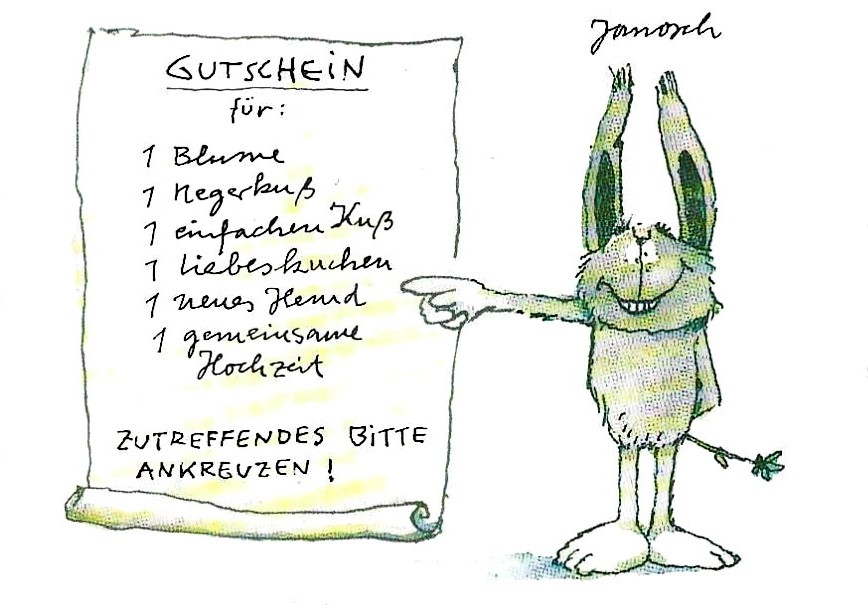 Janosch
GUTSCHEIN
für:
1 Blume
1 Negerkuß
1 einfachen Kuß
1 Liebeskuchen
1 neues Hemd
1 gemeinsame
Hochzeit
ZUTREFFENDES BITTE
ANKREUZEN !